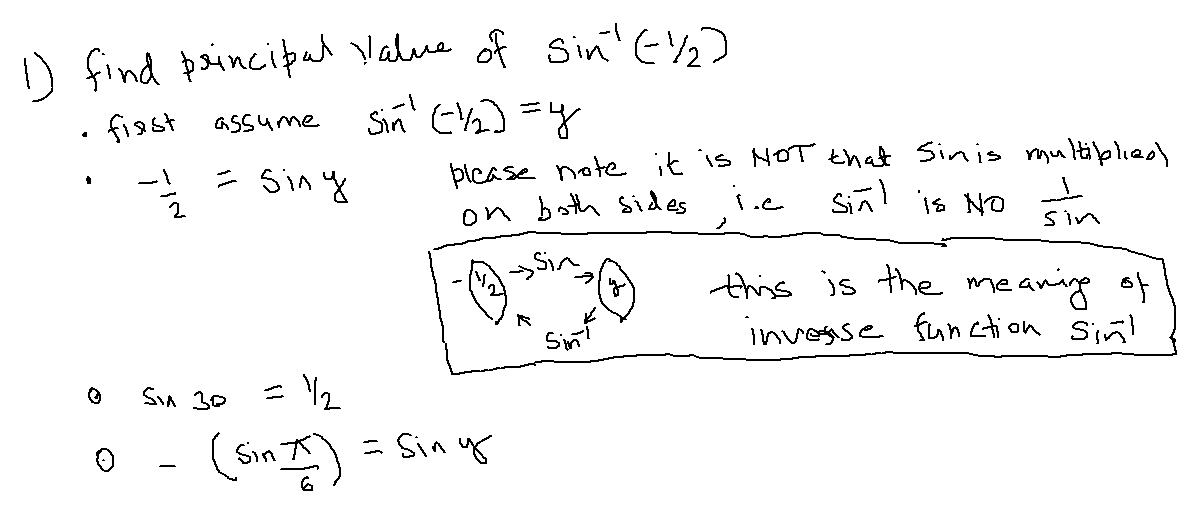 1) find principal value of sin⁻¹(-1/2)
• first assume sin⁻¹(-1/2) = y
• -1/2 = sin y
please note it is NOT that sin is multiplied
on both sides, i.e sin⁻¹ is NO 1/sin
- 1/2 → sin → y
sin⁻¹
this is the meaning of
inverse function sin⁻¹
• sin 30 = 1/2
• - (sin π/6) = sin y